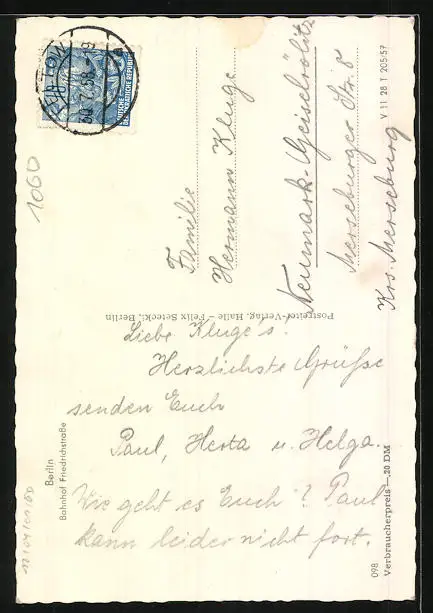 Familie
Hermann Kluge
Neumark-Geiselröhlitz
Merseburger Str. 8
Krs. Merseburg
V 11 28 T 205/57
1060
30.7.58
DEUTSCHE
DEMOKRATISCHE REPUBLIK
Postreiter-Verlag, Halle – Felix Setecki, Berlin
Liebe Kluge's!
Herzlichste Grüße
senden Euch
Paul, Herta u. Helga.
Wie geht es Euch? Paul
kann leider nicht fort.
Berlin
Bahnhof Friedrichstraße
098
Verbraucherpreis —,20 DM